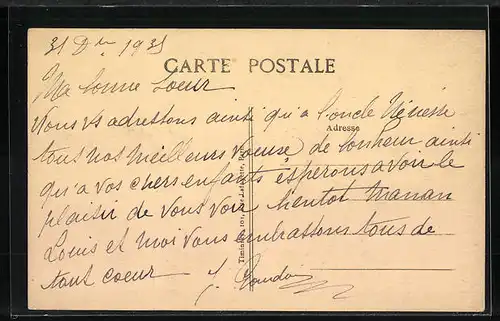 31 Dbr 1935
CARTE POSTALE
Ma bonne Soeur
Nous vs adressons ainsi qu'a l'oncle
Adresse
tous nos meilleurs voeux de bonheur ainsi
qu'a vos chers enfants esperons avoir le
plaisir de vous voir bientot Maman
Louis et moi vous embrassons tous de
tout coeur J.